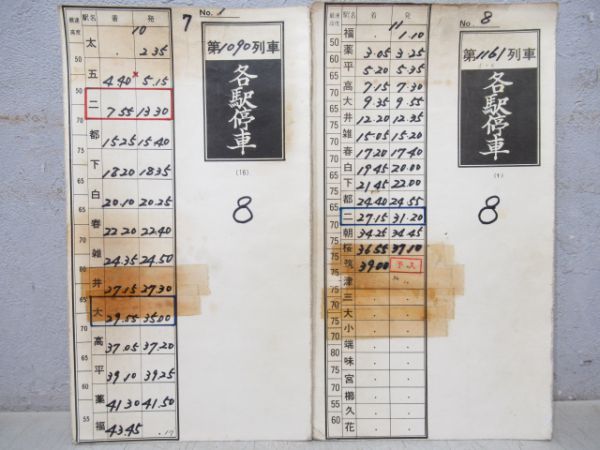 No. 1
最速 駅名 着 発
高度
7
第1090列車
各駅停車
(16)
8
10
太 . 2.35
50
五 4.40 × 5.15
50
二 7.55 13.30
70
都 15.25 15.40
下 18.20 18.35
白 20.10 20.25
春 22.20 22.40
雑 24.35 24.50
井 27.15 27.30
大 29.55 35.00
70
高 37.05 37.20
平 39.10 39.25
薬 41.30 41.50
60
福 43.45 . 17
No. 8
駅名 着 発
第1161列車
各駅停車
(1)
8
11
福 . 1.10
50
薬 3.05 3.25
平 5.20 5.35
70
高 7.15 7.30
大 9.35 9.55
井 12.20 12.35
雑 15.05 15.20
春 17.20 17.40
白 19.45 20.00
下 21.45 22.00
都 24.40 24.55
二 27.15 31.20
70
朝 34.25 34.45
桜 36.55 37.10
茂 39.00
津 . .
三 . .
大 . .
小 . .
端 . .
味 . .
宮 . .
櫛 . .
久 . .
60
花 . .